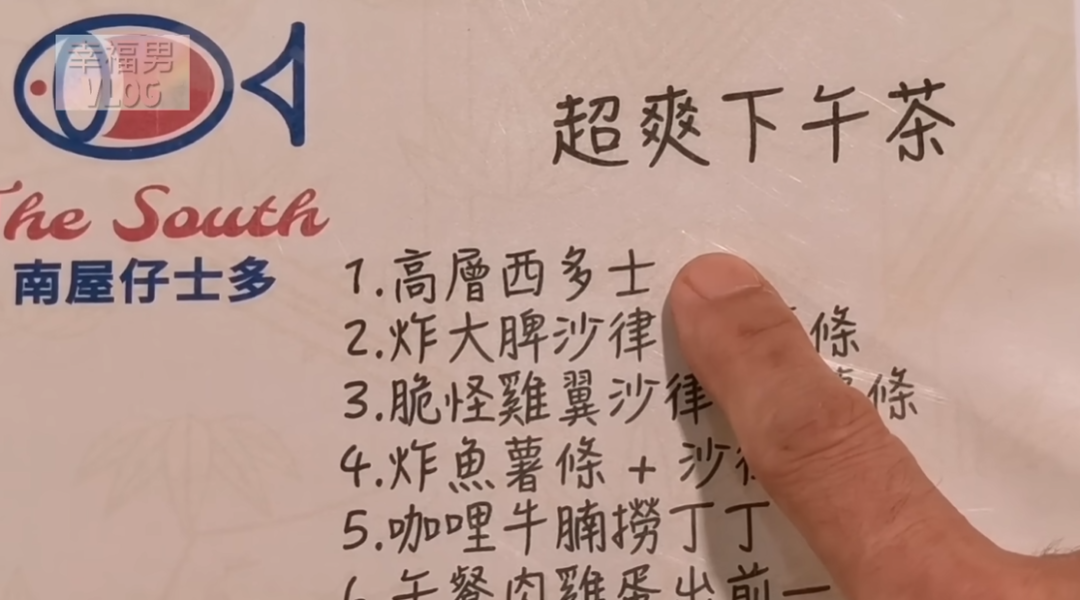 幸福男
VLOG
The South
南屋仔士多
超爽下午茶
1.高層西多士
2.炸大脾沙律 條
3.脆怪雞翼沙律 條
4.炸魚薯條 + 沙
5.咖哩牛腩撈丁丁
6.午餐肉雞蛋出前一